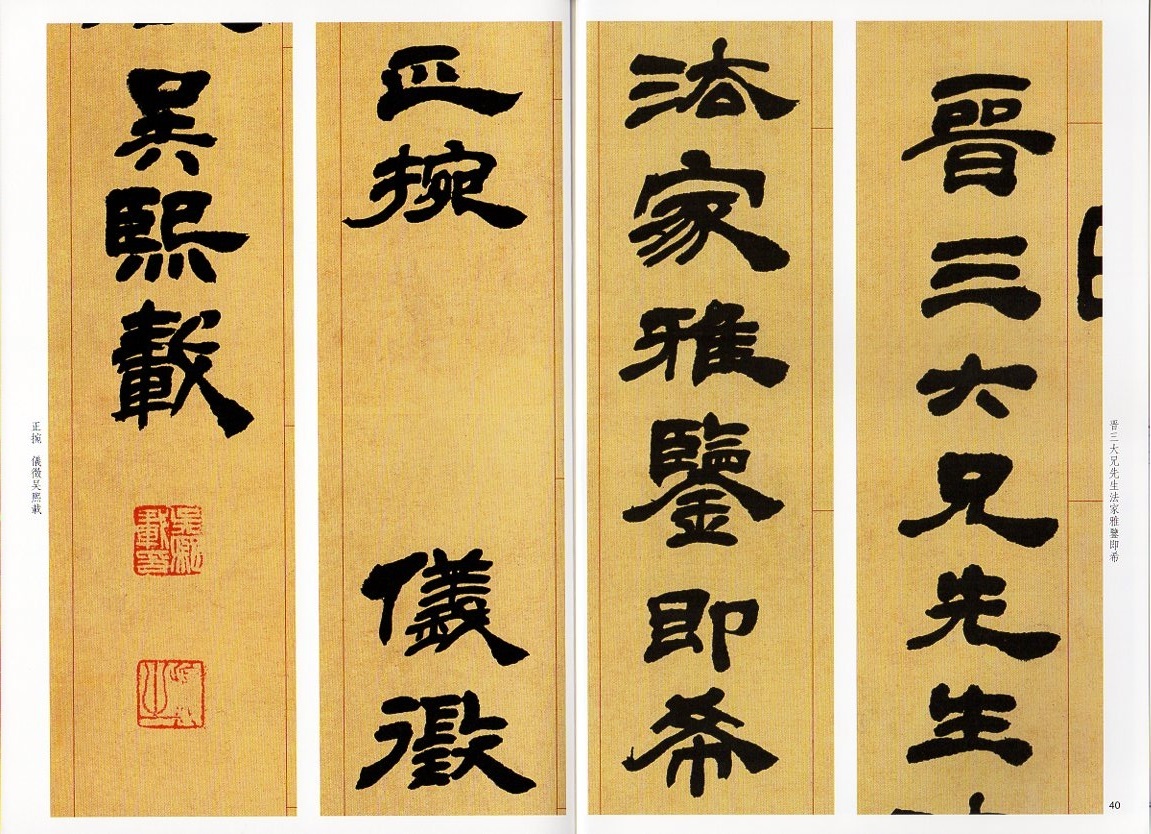 晉三大兄先生
法家雅鑒即希
正捥 儀徵
吳熙載
晋三大兄先生法家雅鑒即希
正捥 儀徵吳熙載
40